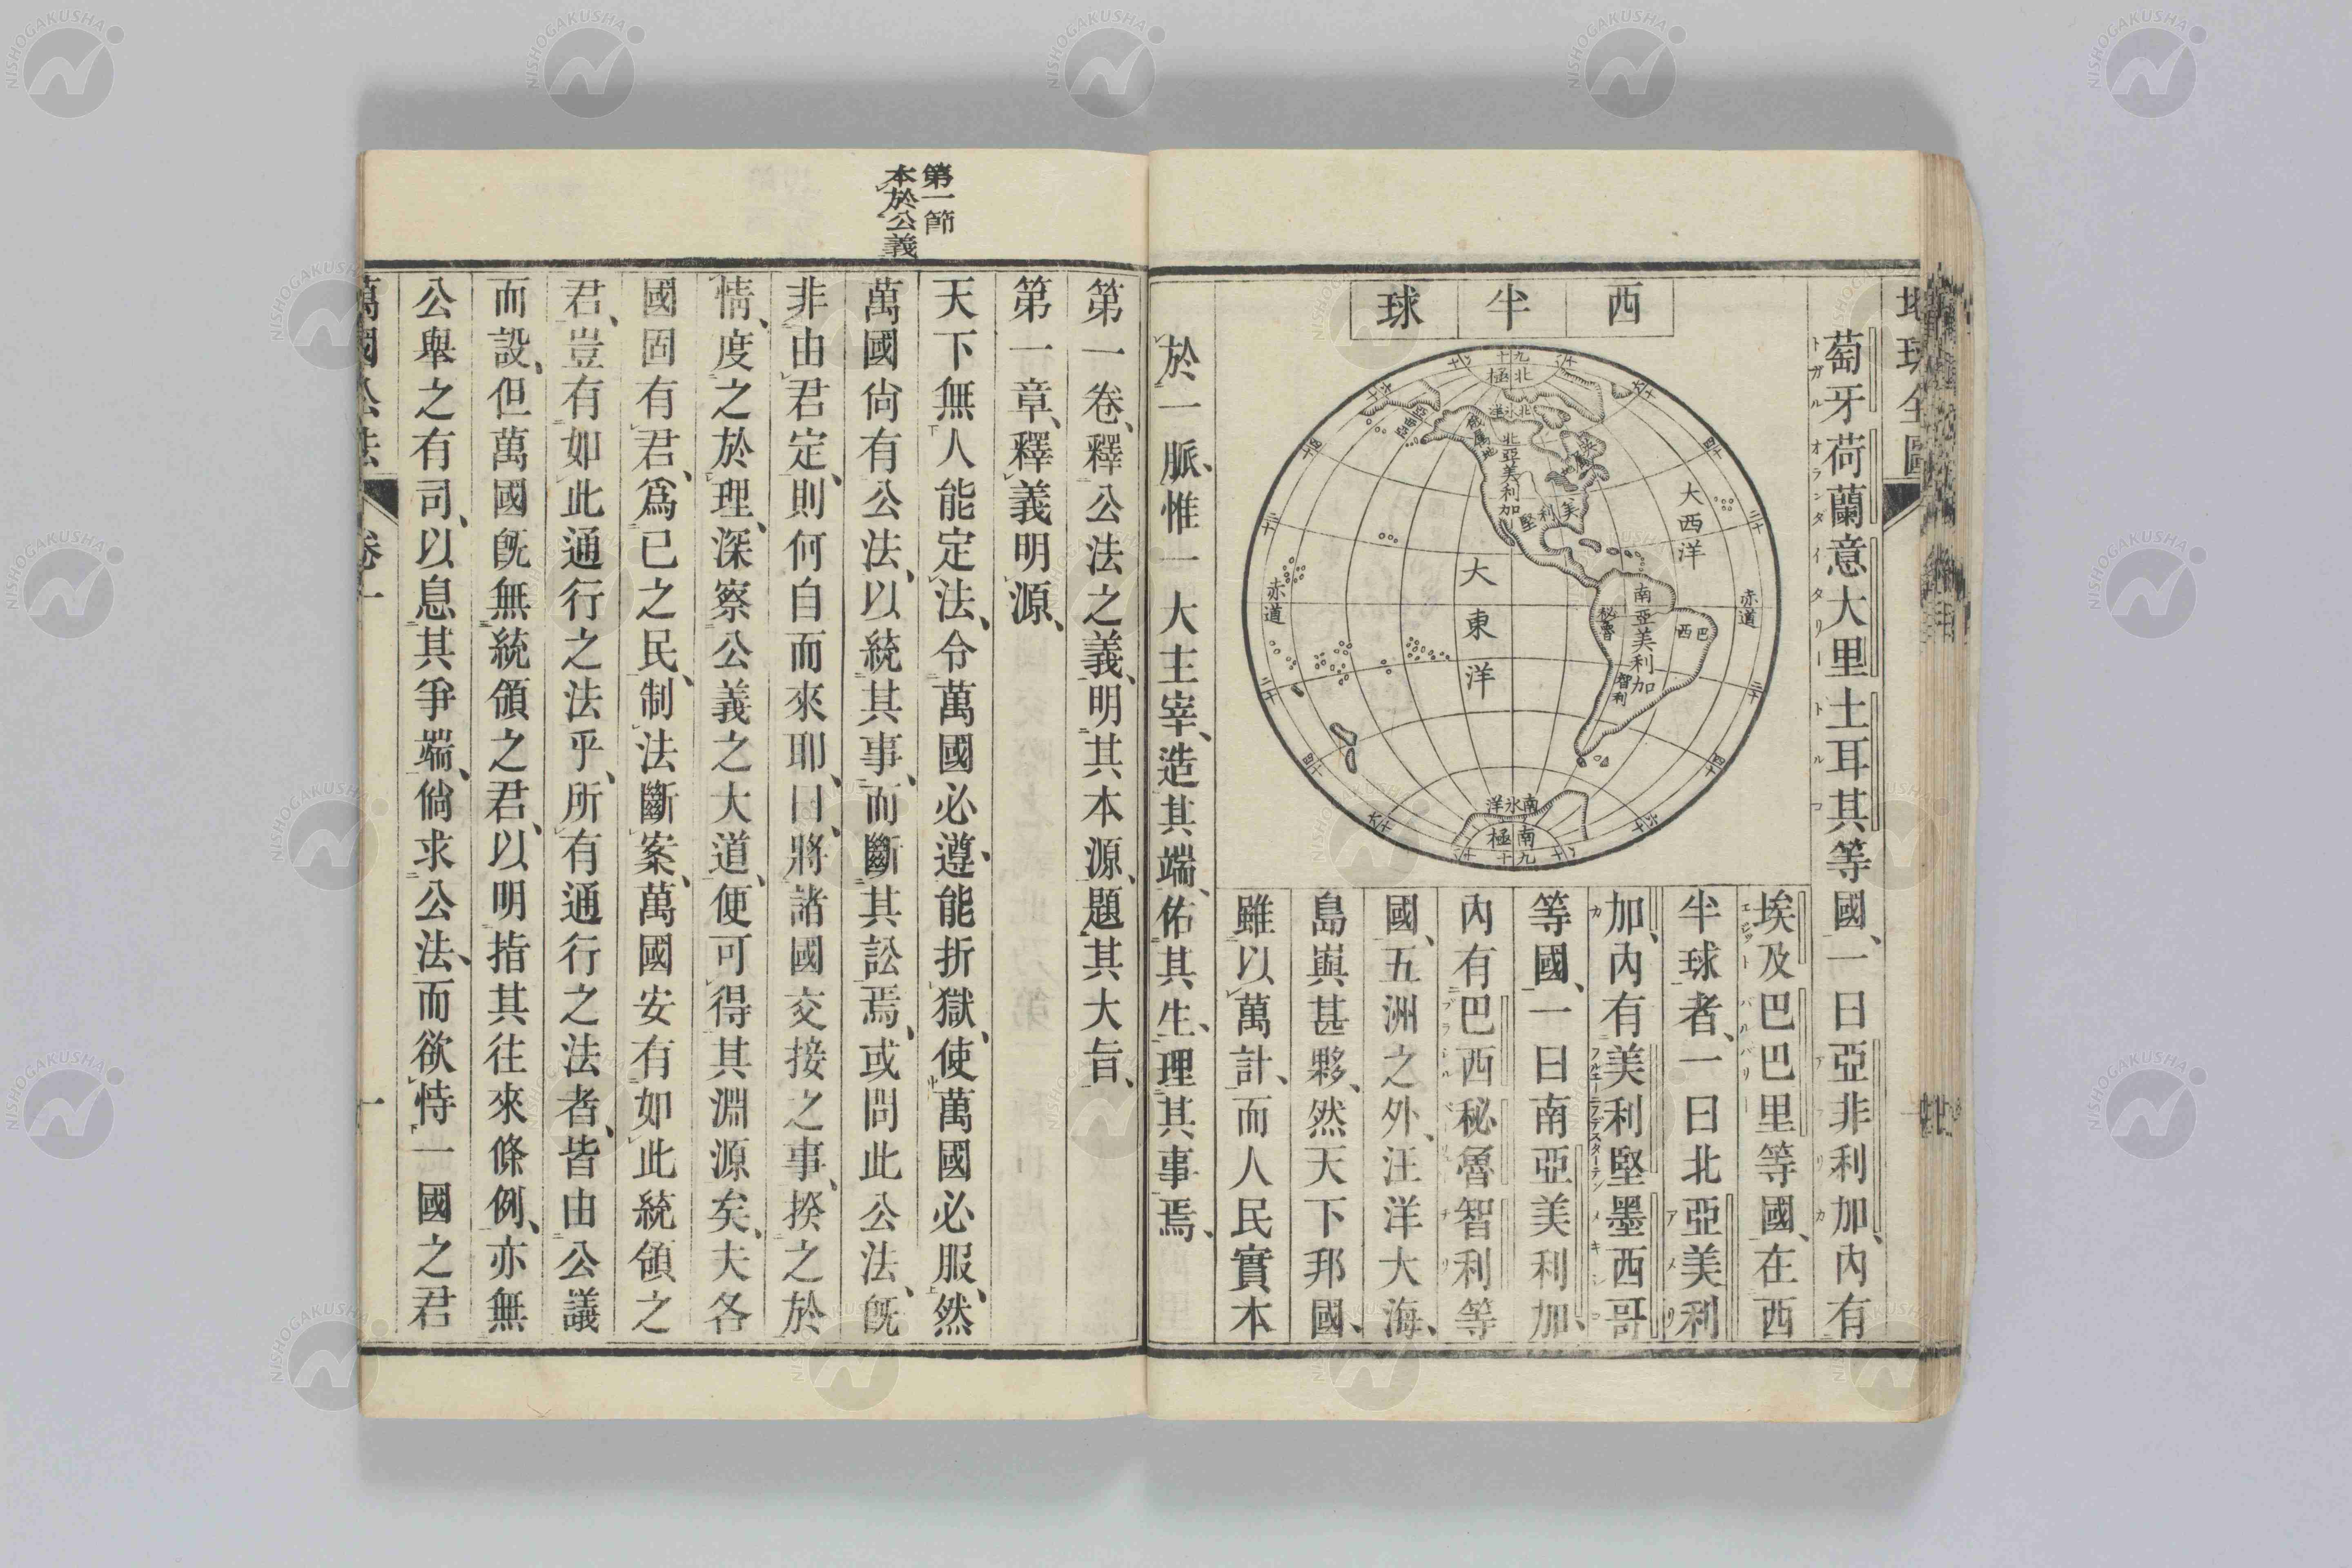 西半球
葡牙荷蘭意大里土耳其等國、一曰亞非利加、內有
埃及巴巴里等國、在西
半球者、一曰北亞美利
加、內有美利堅墨西哥
等國、一曰南亞美利加、
內有巴西秘魯智利等
國、五洲之外、汪洋大海、
島與甚夥、然天下邦國、
雖以萬計、而人民實本
於一脈、惟一大主宰、造其端、佑其生、理其事焉、
北極
北氷洋
北亞美利加
美利堅
大西洋
大東洋
赤道
赤道
南亞美利加
巴西
秘魯
智利
南氷洋
南極
第一卷、釋公法之義、明其本源、題其大旨、
第一章、釋義明源、
第一節
本於公義
天下無人能定法、令萬國必遵、能折獄、使萬國必服、然
萬國尙有公法、以統其事、而斷其訟焉、或問此公法、旣
非由君定、則何自而來耶、曰、將諸國交接之事、揆之於
情、度之於理、深察公義之大道、便可得其淵源矣、夫各
國固有君、爲已之民、制法斷案、萬國安有如此統領之
君、豈有如此通行之法乎、所有通行之法者、皆由公議
而設、但萬國旣無統領之君、以明指其往來條例、亦無
公舉之有司、以息其爭端、倘求公法、而欲恃一國之君
萬國公法 卷一 一
NISHOGAKUSHA